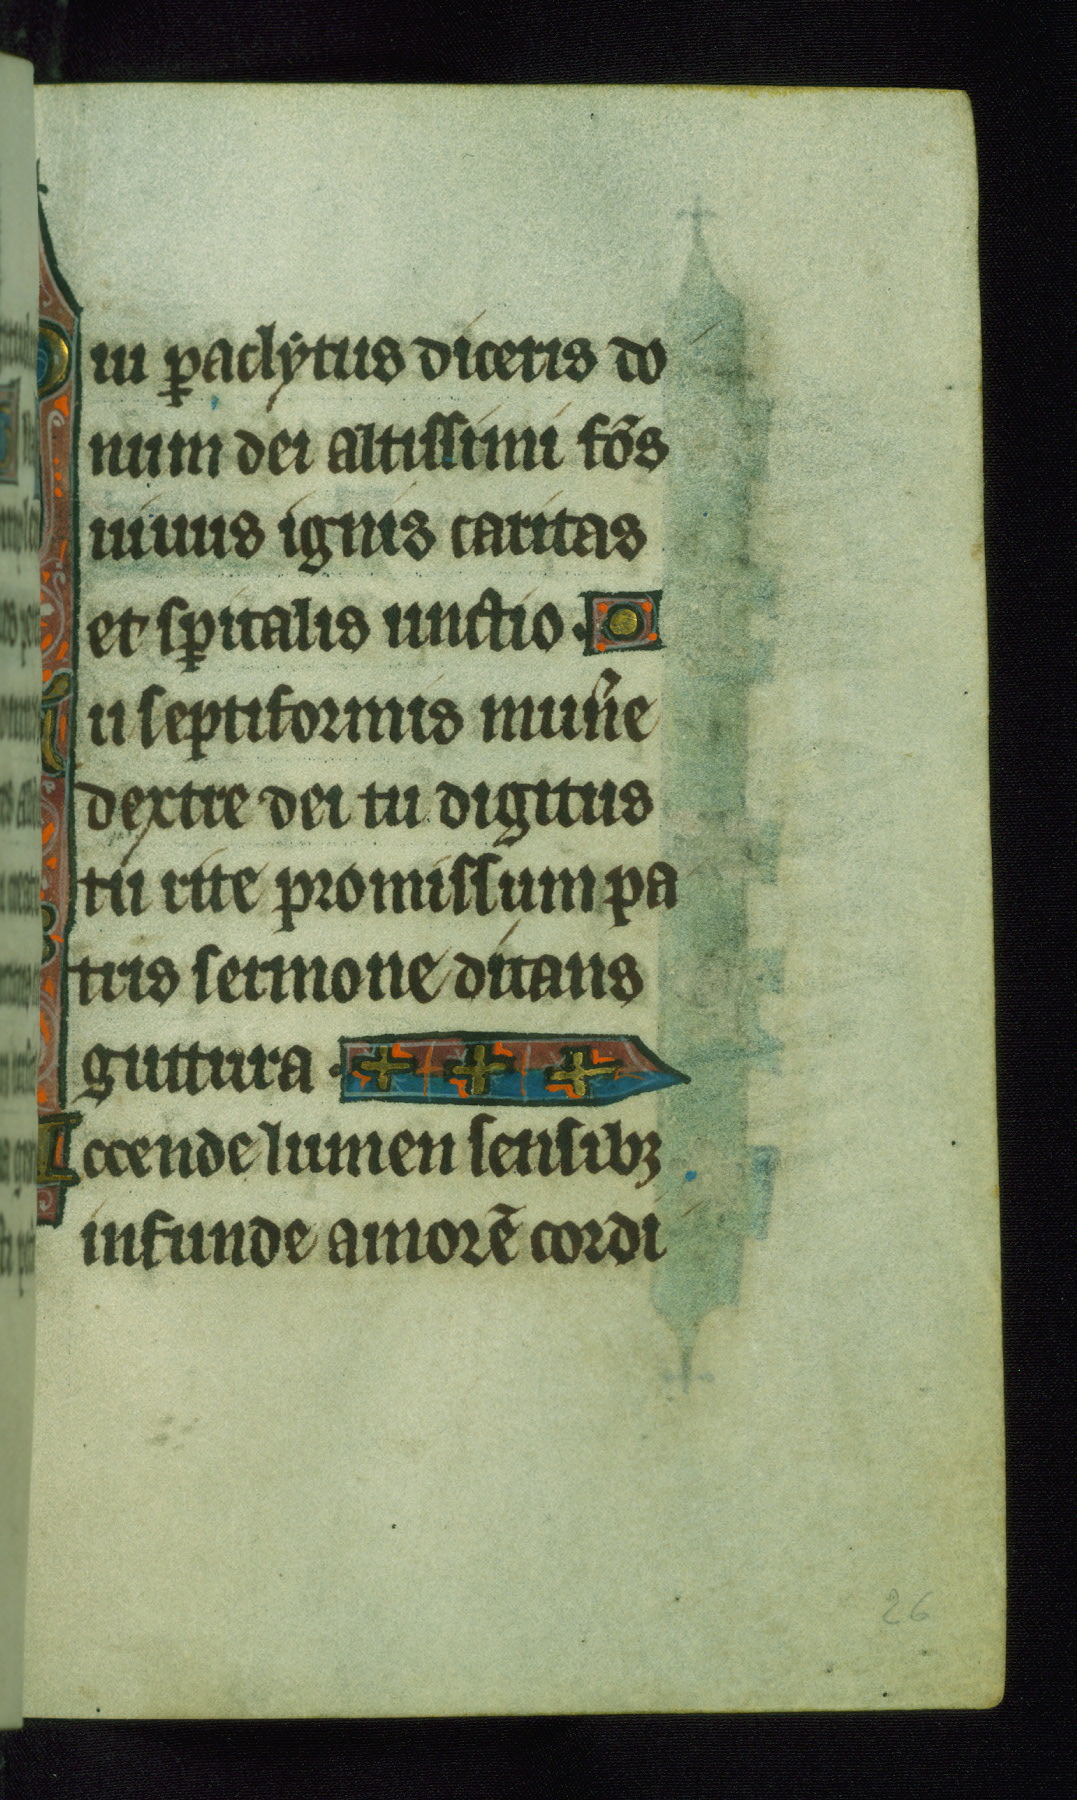 iu p̲aclẏtus diceris do
num dei altissimi fo᷒s
uiuus ignis caritas
et sp̲italis unctio .
u septiformis mun̄e
dextre dei tu digitus
tu rite promissum pa
tris sermone ditans
guttura .
Accende lumen sensibꝫ
infunde amorē cordi
26